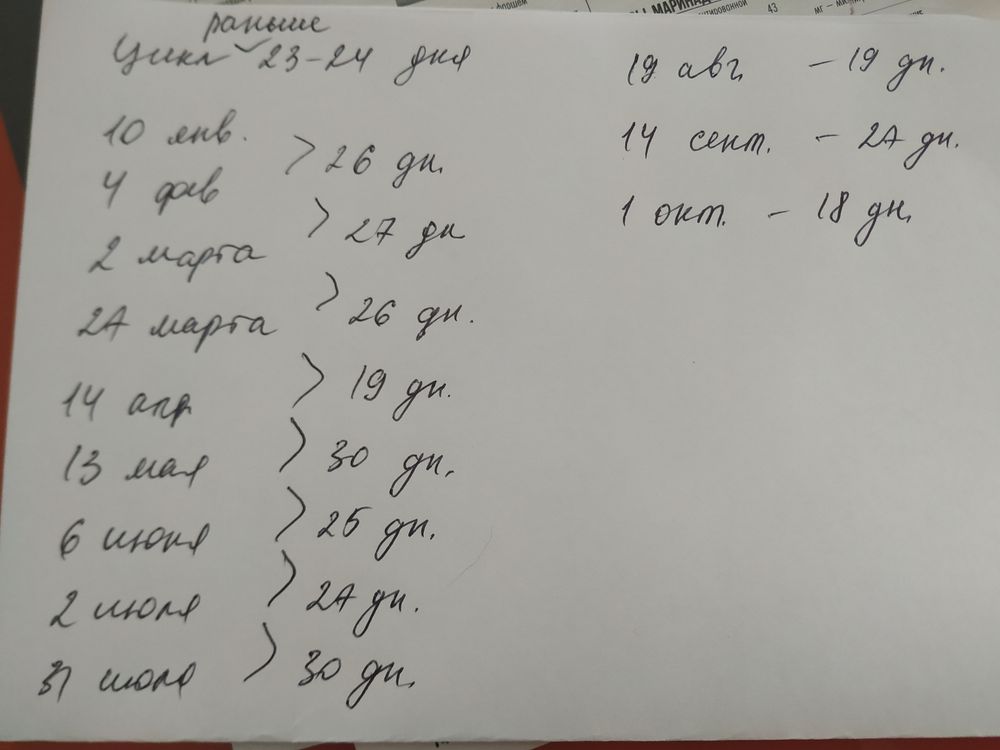 флошем
Ы МАРИНАД
нтированной 43 мг
раньше
Цикл 23-24 дня
10 янв.
> 26 дн.
4 фев
> 27 дн
2 марта
> 26 дн.
27 марта
> 19 дн.
14 апр
> 30 дн.
13 мая
> 25 дн.
6 июня
> 27 дн.
2 июля
> 30 дн.
31 июля
19 авг. - 19 дн.
14 сент. - 27 дн.
1 окт. - 18 дн.